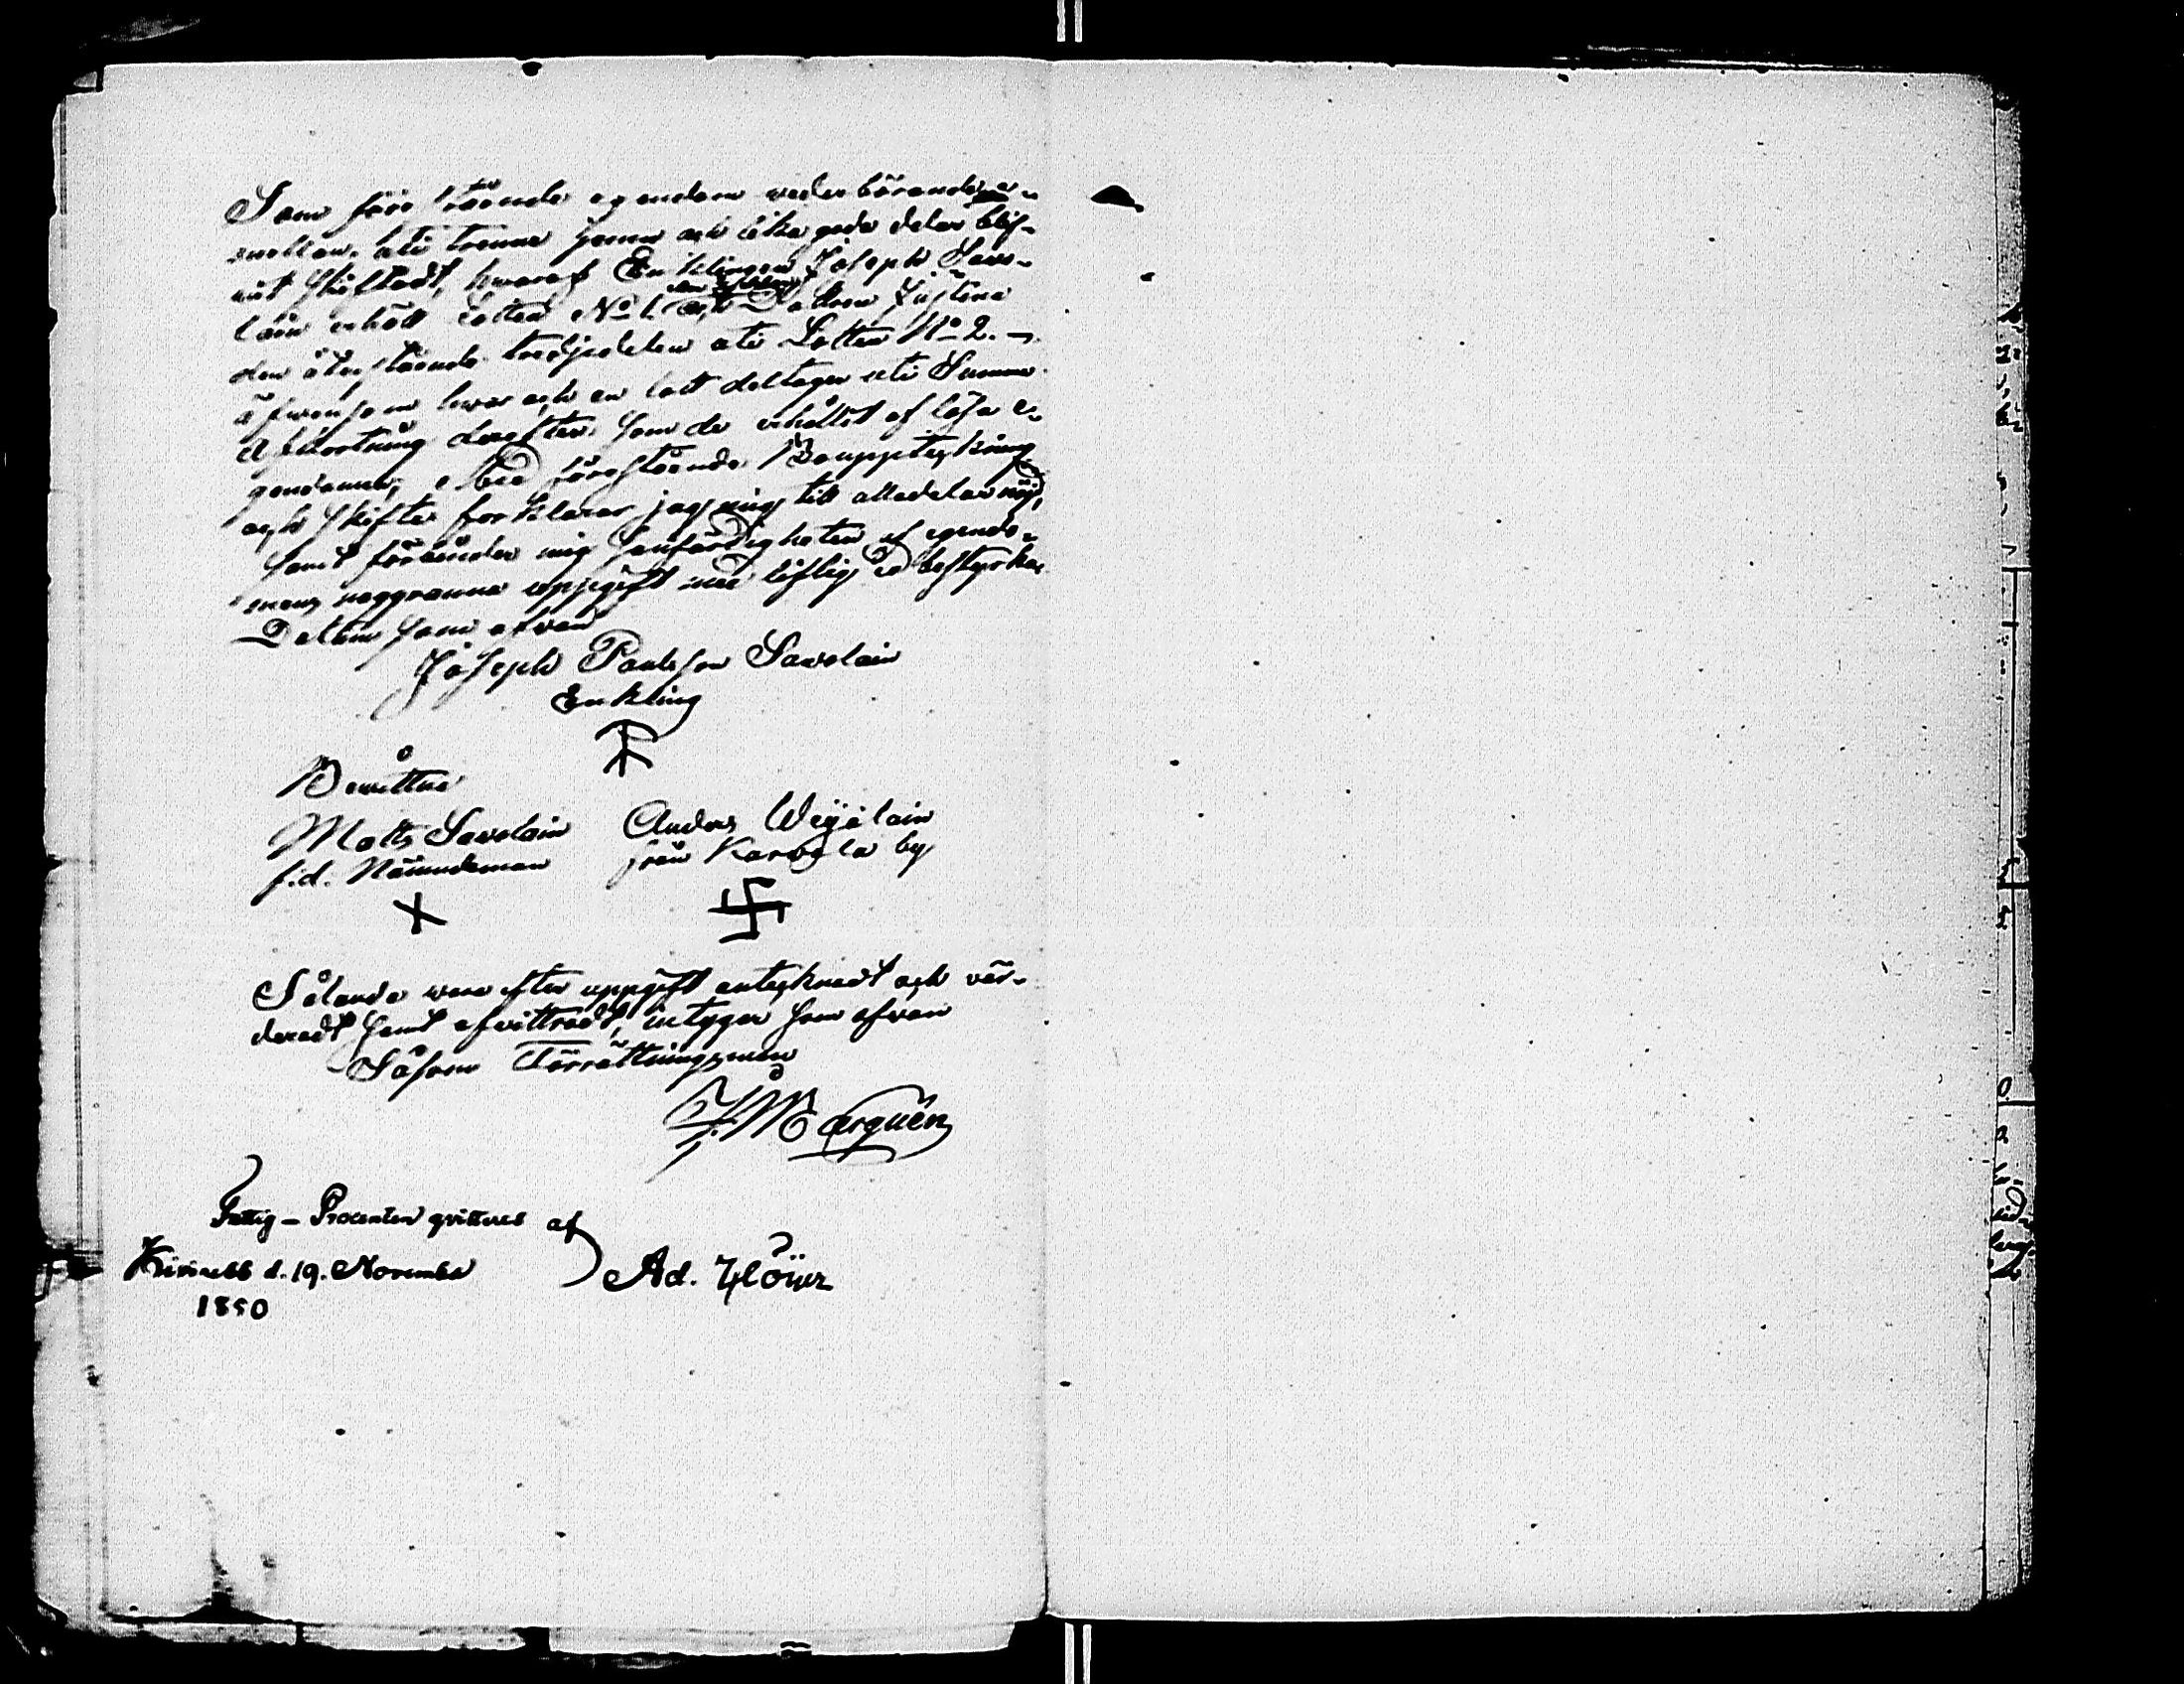 Som förestående egendom wederbörande e-
mellan, uti trenne jemna och lika goda delar blif-
wit skiftadt, hwaraf Enklingen Joseph Savo-
lain erhöll Lotten No 1. och Dottren Justina
den återstående tredjedelen uti Lotten No 2. –
äfwensom hwar och en lott deltager uti Summa
Afkortning derefter som de erhållit af lösa e-
gendomen; Med förestående Bouppteckning
och skifte förklarar jag mig till alla delar nöjd,
samt förbinder mig sanfärdigheten af egendo-
mens noggranna uppgift med liflig ed bestyrka.
Datum som ofvan
Joseph Paulsson Savolain
Enkling
Bewittna
Matts Savolain Anders Weijalain
f.d. Nämndeman från Karvala by
Sålunda vara efter uppgift antecknadt och vär-
deradt samt afvittradt, intyger som ofvan
Såsom Förrättningsman
Fattig-Procenten qvitteras af
Kivinebb d. 19. November Ad.
1850